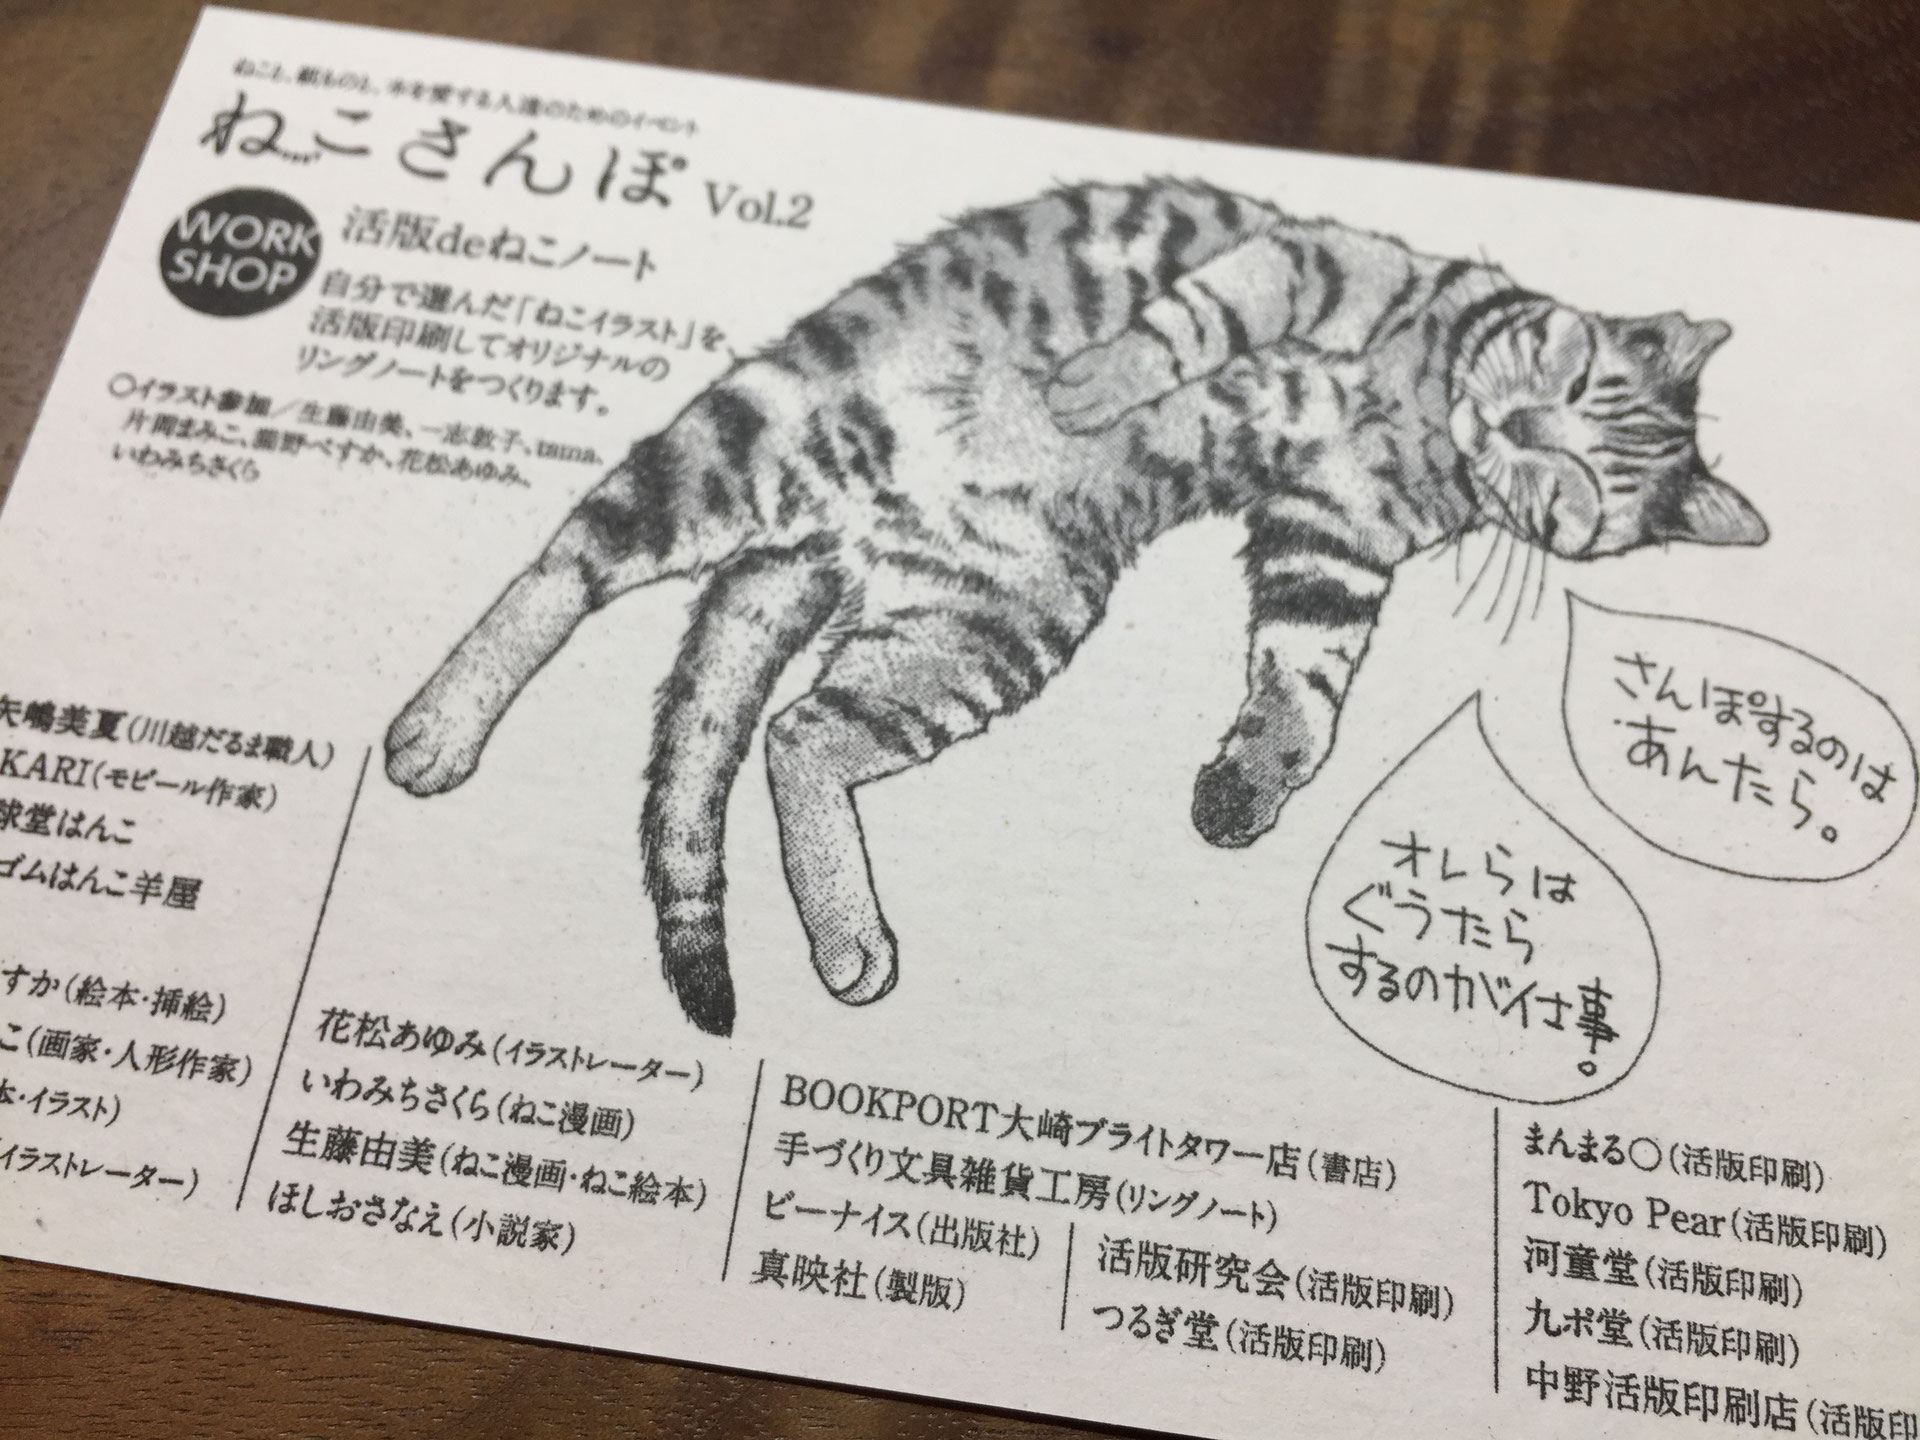 ねこと、紙ものと、本を愛する人達のためのイベント
ねこさんぽ Vol.2
WORK
SHOP
活版deねこノート
自分で選んだ「ねこイラスト」を、
活版印刷してオリジナルの
リングノートをつくります。
○イラスト参加／生藤由美、一志敦子、tama、
片岡まみこ、熊野べすか、花松あゆみ、
いわみちさくら
さんぽするのは
あんたら。
オレらは
ぐうたら
するのが仕事。
矢嶋美夏(川越だるま職人)
KARI(モビール作家)
球堂はんこ
ゴムはんこ羊屋
すか(絵本・挿絵)
こ(画家・人形作家)
本・イラスト)
イラストレーター)
花松あゆみ(イラストレーター)
いわみちさくら(ねこ漫画)
生藤由美(ねこ漫画・ねこ絵本)
ほしおさなえ(小説家)
BOOKPORT大崎ブライトタワー店(書店)
手づくり文具雑貨工房(リングノート)
ビーナイス(出版社)
真映社(製版)
活版研究会(活版印刷)
つるぎ堂(活版印刷)
まんまる○(活版印刷)
Tokyo Pear(活版印刷)
河童堂(活版印刷)
九ポ堂(活版印刷)
中野活版印刷店(活版印